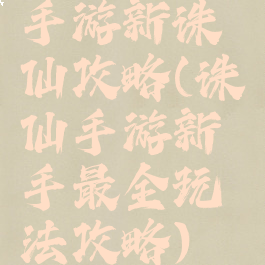 手游新诛
仙攻略(诛
仙手游新
手最全玩
法攻略)